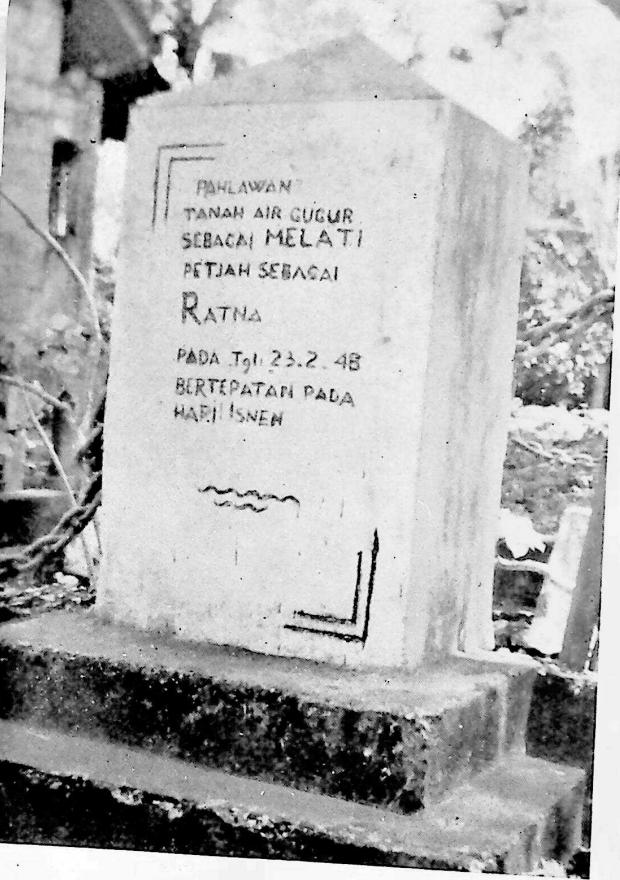 PAHLAWAN
TANAH AIR GUGUR
SEBAGAI MELATI
PETJAH SEBAGAI
RATNA
PADA Tgl: 23.2.48
BERTEPATAN PADA
HARI ISNEN